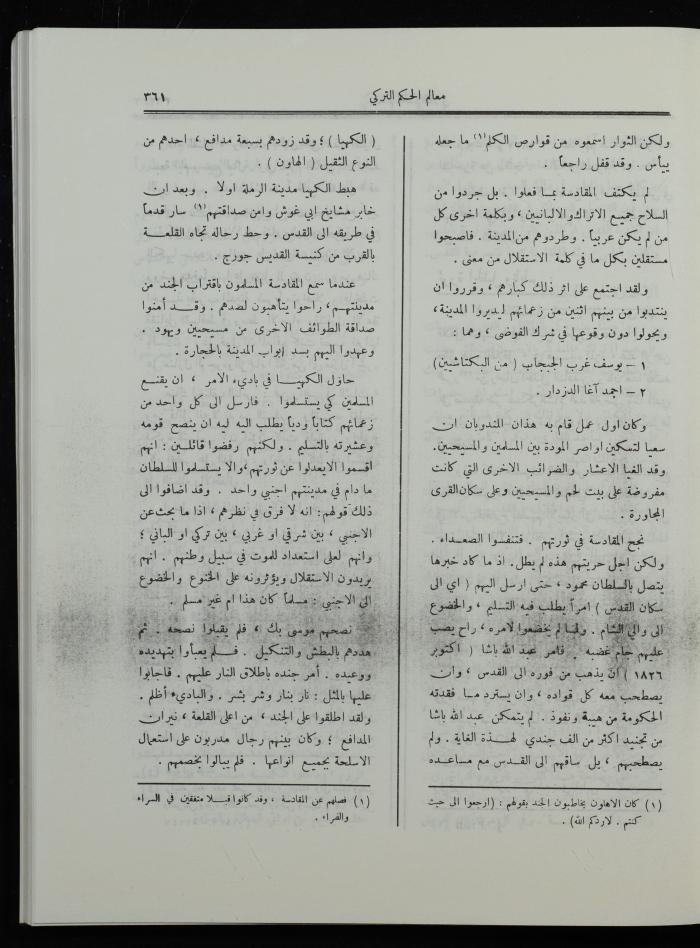 معالم الحكم التركي
٣٦١
ولكن الثوار اسمعوه من قوارص الكلم(١) ما جعله
ييأس . وقد قفل راجعاً .
لم يكتف المقادسة بمـا فعلوا . بل جردوا من
السلاح جميع الاتراك والالبانيين ، وبكلمة اخرى كل
من لم يكن عربياً . وطردوهم من المدينة . فاصبحوا
مستقلين بكل ما في كلمة الاستقلال من معنى .
ولقد اجتمع على اثر ذلك كبارهم ، وقرروا ان
ينتدبوا من بينهم اثنين من زعمائهم ليديروا المدينة،
ويحولوا دون وقوعها في شرك الفوضى ، وهما :
١ – يوسف غرب الجبجاب ( من البكتاشيين)
٢ – احمد آغا الدزدار .
وكان اول عمل قام به هذان المندوبان ان
سعيا لتسكين اواصر المودة بين المسلمين والمسيحيين.
وقد الغيا الاعشار والضرائب الاخرى التي كانت
مفروضة على بيت لحم والمسيحيين وعلى سكان القرى
المجاورة .
نجح المقادسة في ثورتهم . فتنفسوا الصعداء .
ولكن اجل حريتهم هذه لم يطل. اذ ما كاد خبرها
يتصل بالسلطان محمود ، حتى ارسل اليهم ( اي الى
سكان القدس ) امراً يطلب فيه التسليم ، والخضوع
الى والي الشام . ولما لم يخضعوا لامره ، راح يصب
عليهم جام غضبه . فامر عبد الله باشا ( اكتوبر
١٨٢٦ ) ان يذهب من فوره الى القدس ، وان
يصطحب معه كل قواده ، وان يسترد مـا فقدته
الحكومة من هيبة ونفوذ . لم يتمكن عبد الله باشا
من تجنيد اكثر من الف جندي لهـذة الغاية . ولم
يصطحبهم ، بل ساقهم الى القـدس مع مساعـده
(١) كان الاهلون يخاطبون الجند بقولهم : (ارجعوا الى حيث
كنتم . لاردكم الله) .
( الكهيا ) ؛ وقد زودهم بسبعة مدافع ، احدهم من
النوع الثقيل ( الهاون ) .
هبط الكهيا مدينة الرملة اولا . وبعد ان
خابر مشايخ ابي غوش وامن صداقتهم(١) سار قدماً
في طريقه الى القدس . وحط رحاله تجاه القلعـــة
بالقرب من كنيسة القديس جورج .
عندما سمع المقادسة المسلمون باقتراب الجند من
مدينتهـم، راحوا يتأهبون لصدهم . وقـــد أمنوا
صداقة الطوائف الاخرى من مسيحيين ويهود .
وعهدوا اليهم بسد ابواب المدينة بالحجارة .
حاول الكهيــا في باديء الامر ، ان يقنـع
المسلمين كي يستسلموا . فارسل الى كل واحد من
زعمائهم كتاباً ودياً يطلب اليه ليه ان ينصح قومه
وعشيرته بالتسليم . ولكنهم رفضوا قائلـين : انهم
اقسموا الايعدلوا عن ثورتهم،والا يستسلموا للسلطان
ما دام في مدينتهم اجنبي واحد . وقد اضافوا الى
ذلك قولهم: انه لا فرق في نظرهم ، اذا ما بحث عن
الاجنبي ، بين شرقي او غربي ، بين تركي او الباني ؛
وانهم لعلى استعداد للموت في سبيل وطنهم . انهم
يريدون الاستقلال ويؤثرونه على الخنوع والخضوع
الى الاجنبي : مسلماً كان هذا ام غير مسلم .
نصحهم موسى بك ، فلم يقبلوا نصحه . ثم
هددهم بالبطش والتنكيل . فــلم يعبأوا بتهديده
ووعيده . أمر جنده باطلاق النار عليهم . فاجابوا
عليها بالمثل : نار بنار وشر بشر . والباديء أظلم .
ولقد اطلقوا على الجند ، من اعلى القلعة ، نيران
المدافع ؛ وكان بينهم رجال مدربون على استعمال
الاسلحة بجميع انواعها . فلم يبالوا بخصمهم .
(١) فصلهم عن المقادسة ، وقد كانوا قبـلا متفقين في السراء
والضراء .